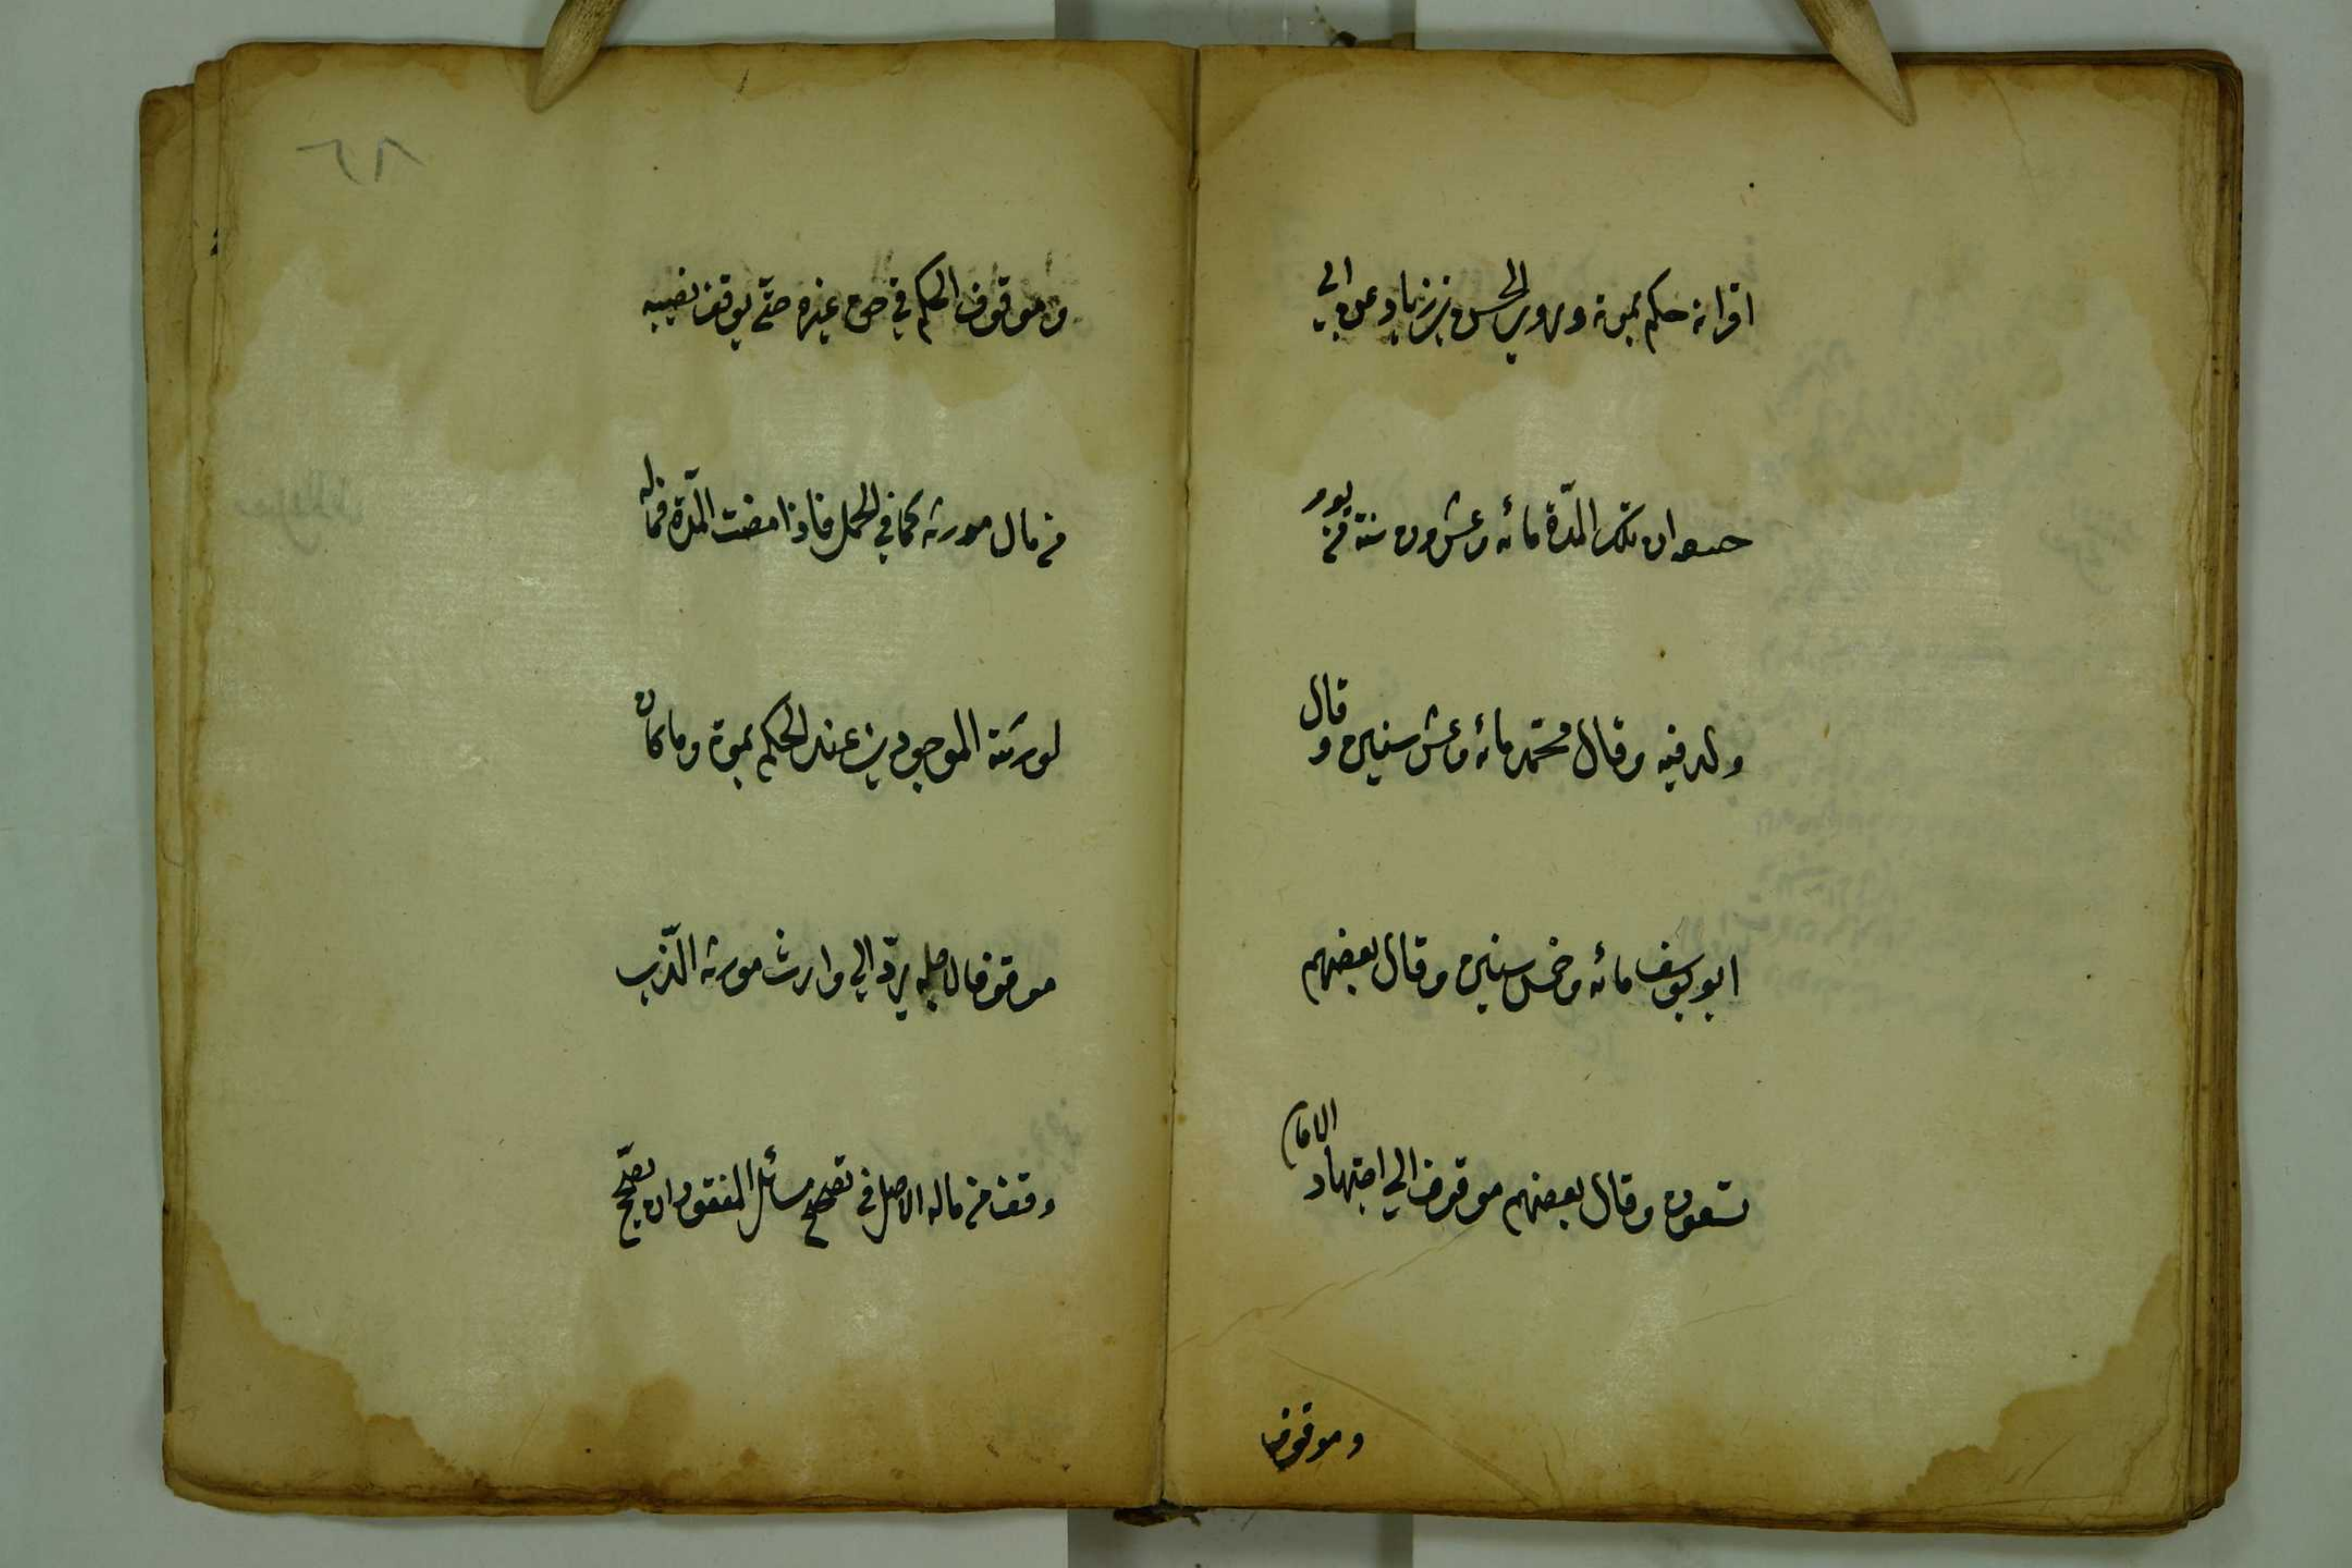 اقرانه حكم بموته وروي الحسن بن زياد عن ابي
حنيفه ان تلك المدّة مائه وعشرون سنة من يوم
ولد فيه وقال محمّد مائه وعشر سنين وقال
ابو يوسف مائه وخمس سنين وقال بعضهم
تسعون وقال بعضهم موقوف الي اجتهاد الامام
وموقوف
٦٥
وموقوف الحكم في حق غيره حتّي يوقف نصيبه
من مال مورثه كما في الحمل فاذا مضت المدّة فماله
لورثته الموجودين عند الحكم بموته وما كان
موقوفا لاجله يردّ الي وارث مورثه الّذي
وقف من ماله الاصل في تصحيح مسائل المفقود ان تصحّح